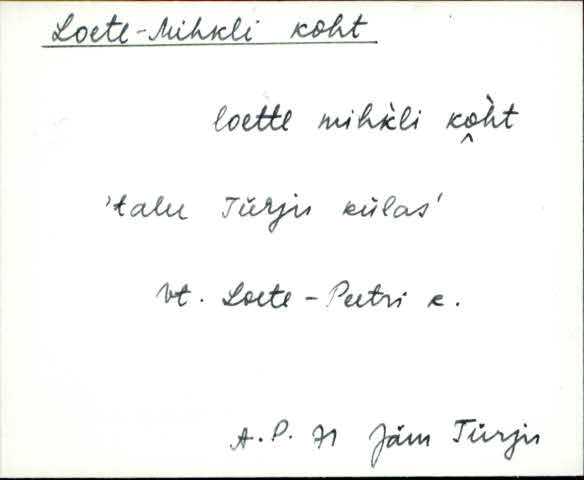 Loete-Mihkli koht
loette mihk̀li ko̭h̀t
'talu Türju külas'
vt. Loete-Peetri k.
A.P. 71 Jäm Türju